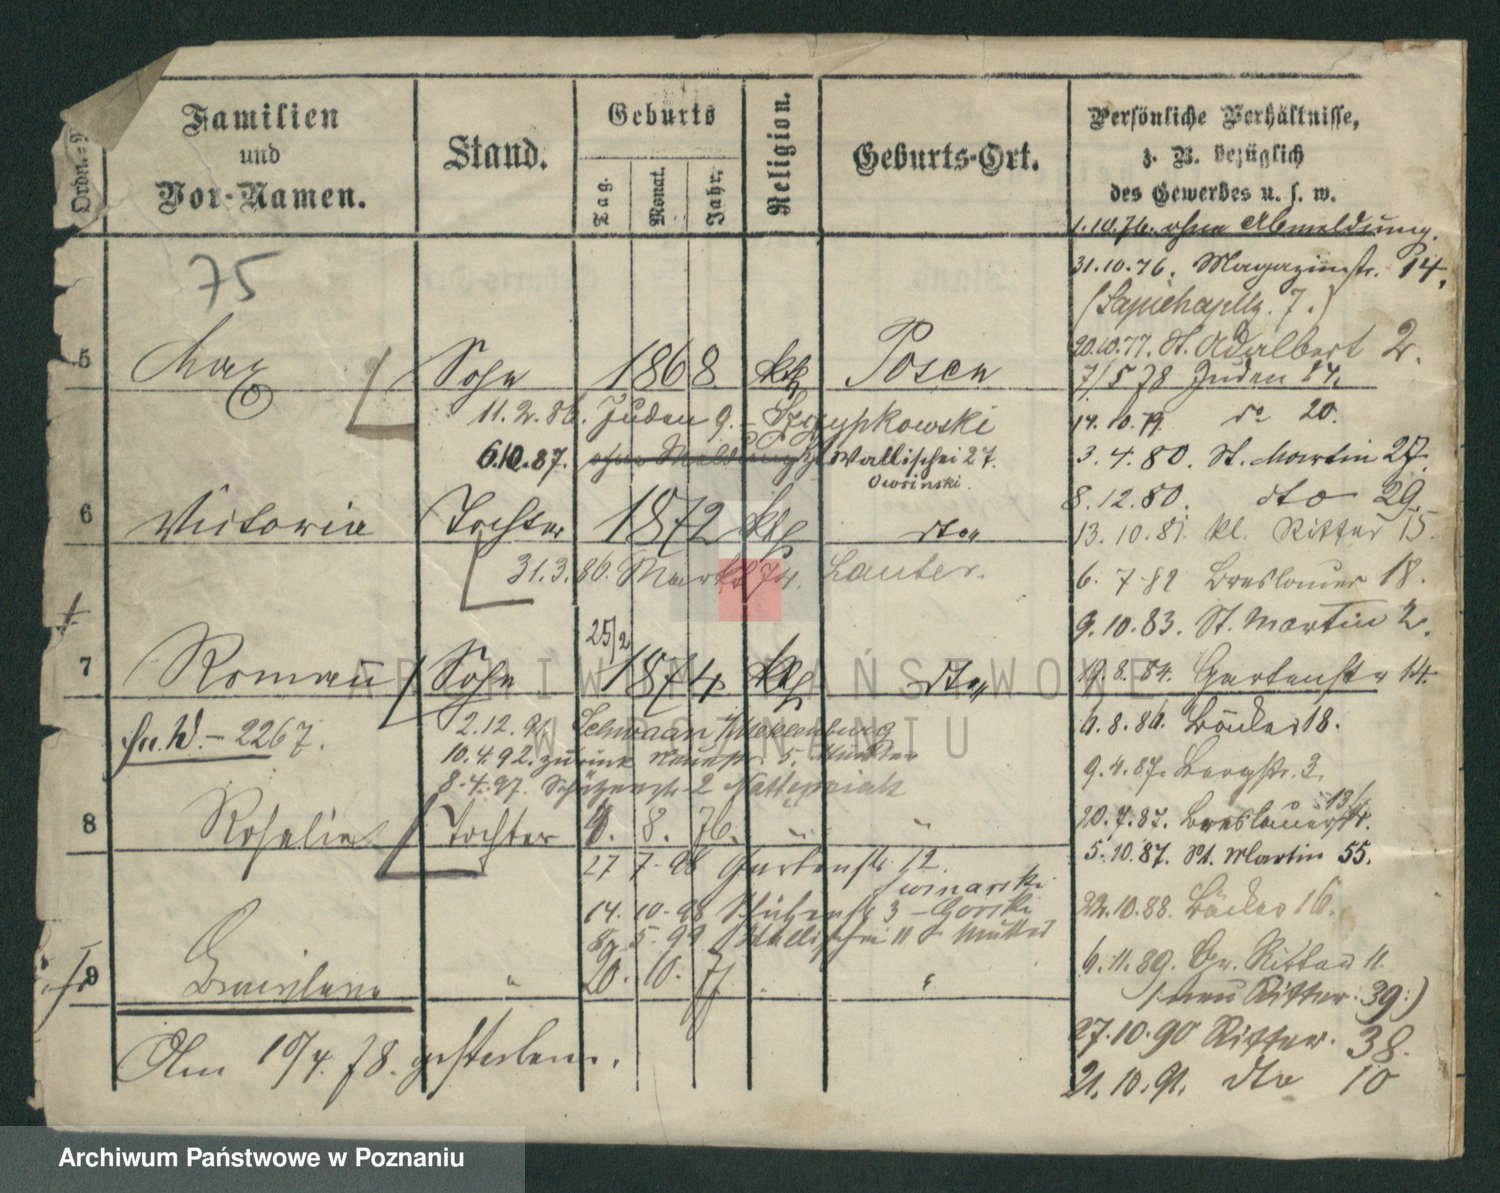 Ordn.
Familien
und
Vor-Namen.
Stand.
Geburts
Tag.
Monat.
Jahr.
Religion.
Geburts-Ort.
Persönliche Verhältnisse,
z. B. bezüglich
des Gewerbes u. s. w.
1.10.76. ohne Abmeldung.
31.10.76. Magazinstr. 14.
(Sapiehaplz. 7.)
20.10.77. St. Adalbert 2.
7/5 78 Juden 14.
14.10.79. do 20.
3.4.80. St. Martin 27.
8.12.80. dto 29.
13.10.81. kl. Ritter 15.
6. 7. 82 Breslauer 18.
9.10.83. St. Martin 2.
19.8.84. Gartenstr 14.
6.8.86. Bäcker 18.
9.4.87. Bergstr. 3.
20.7.87. Breslauerstr. 13/14.
5.10.87. St. Martin 55.
22.10.88. Bäcker 16.
6.11.89. Gr. Ritter 11.
(:neu Ritter: 39:)
27.10.90 Ritter. 38.
21.10.91. dto 10
75
5 Max Sohn 1868. kth Posen
11.2.86. Juden 9. – Szczypkowski
6.10.87. ohne Meldung Wallischei 27.
Owsinski.
6 Victoria Tochter 1872 kth dto
31.3.86. Markt 74. Lauter.
25/2
7 Roman Sohn 1874 kth dto
2267.
2.12.91. Schwaan Mecklenburg
10.4.92. zurück 5. Mutter
8.4.97. Schützenstr 2
8 Rosalia Tochter 4. 8. 76. " "
27 7 98 Gartenstr. 12.
14. 10 98 Schützenstr 3 – Gorski
8. 5. 99 Wallischei 11 b Mutter
9 " 20. 10. 77 "
Am 10/4. 78. gestorben.
ARCHIWUM PAŃSTWOWE
W POZNANIU
Archiwum Państwowe w Poznaniu